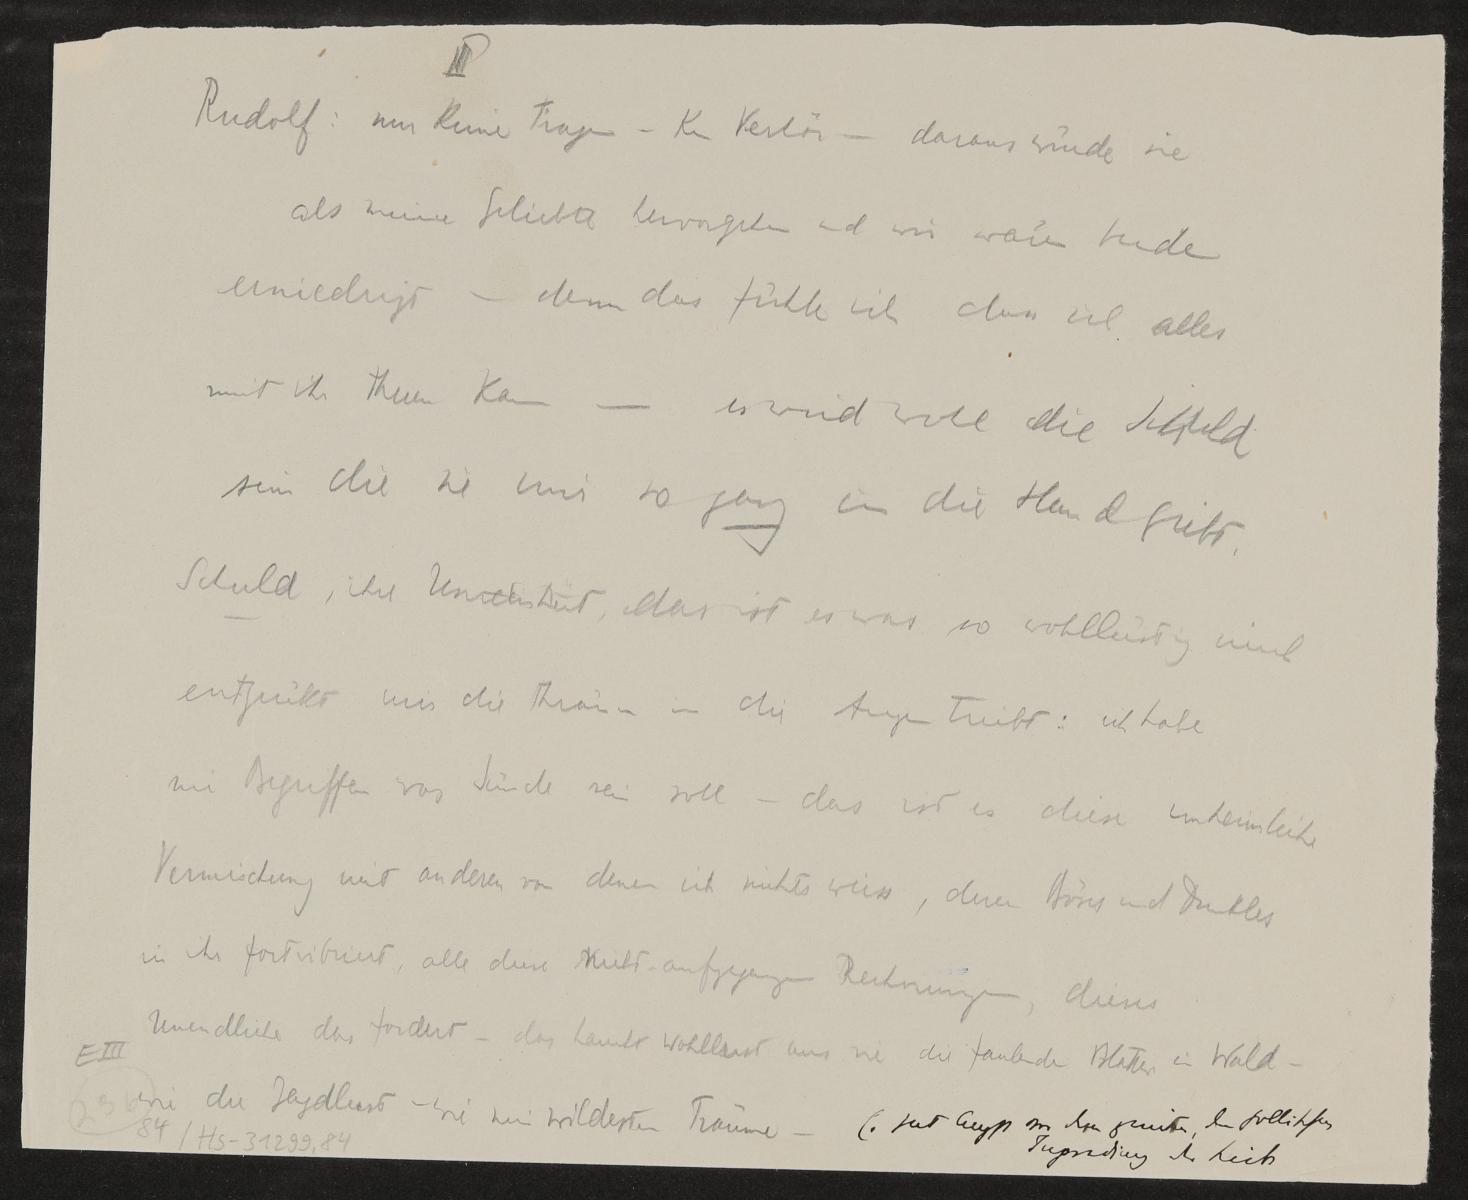 III
Rudolf: nur keine Fragen – Kein Verhör – daraus würde sie
als meine Geliebte hervorgehen und wir wären beide
erniedrigt – denn das fühle ich dass ich alles
mit ihr thuen kann – es wird wohl die Schuld
sein die sie mir so ganz in die Hand giebt.
Schuld, ihre Unreinheit, das ist es was so wohllüstig mich
entzückt mir die Thränen in die Augen treibt: ich habe
nie Begriffen was Sünde sein soll – das ist es diese unheimliche
Vermischung mit anderen von denen ich nichts weiss, deren Böses und Dunkles
in ihr fortvibriert, alle diese Nicht-aufgegangenen Rechnungen, dieses
Unendliche das fordert – das haucht Wohllust aus wie die faulenden Blätter im Wald –
wie die Jagdlust – wie mein wildesten Träume –
(. hat Angst vor dem
der Liebe
E III
84 / Hs-31299,84